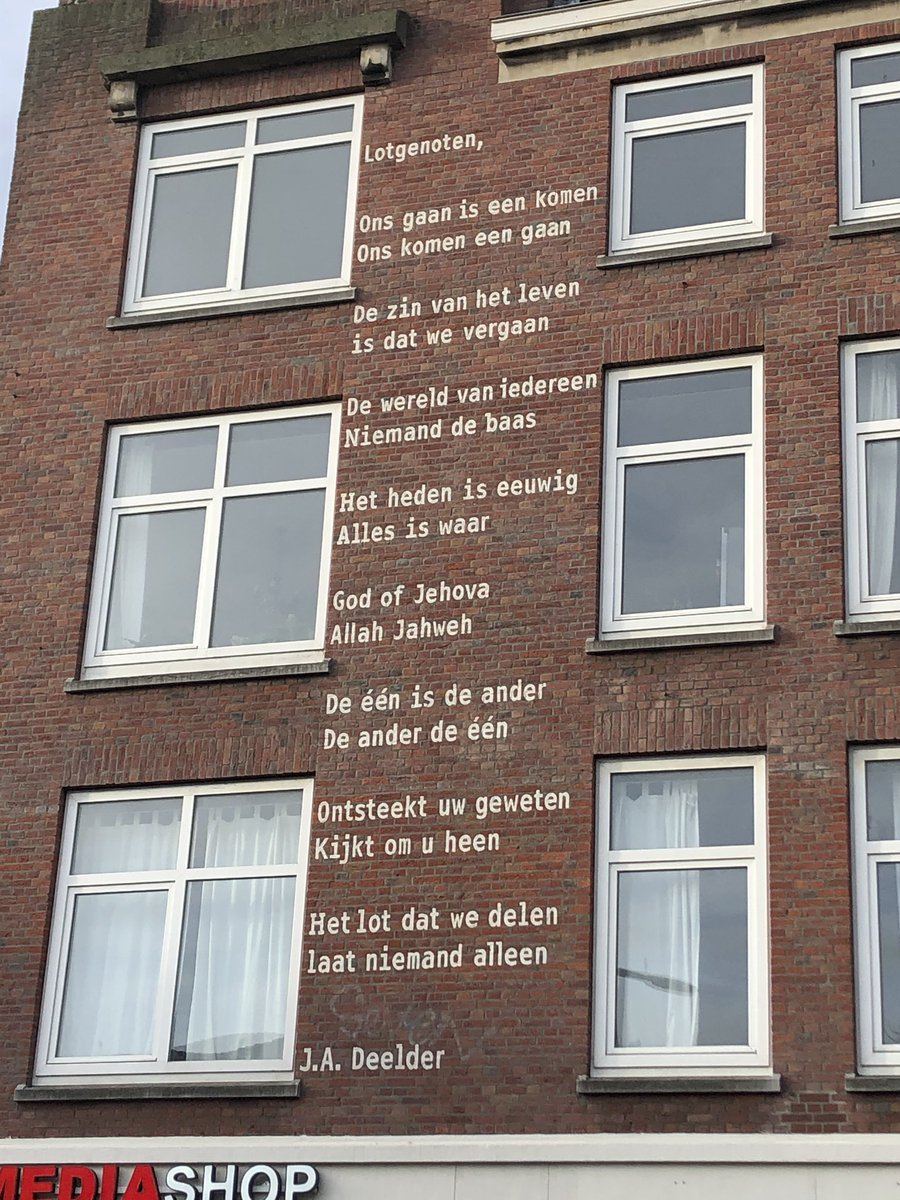 Lotgenoten,
Ons gaan is een komen
Ons komen een gaan
De zin van het leven
is dat we vergaan
De wereld van iedereen
Niemand de baas
Het heden is eeuwig
Alles is waar
God of Jehova
Allah Jahweh
De één is de ander
De ander de één
Ontsteekt uw geweten
Kijkt om u heen
Het lot dat we delen
laat niemand alleen
J.A. Deelder
MEDIASHOP